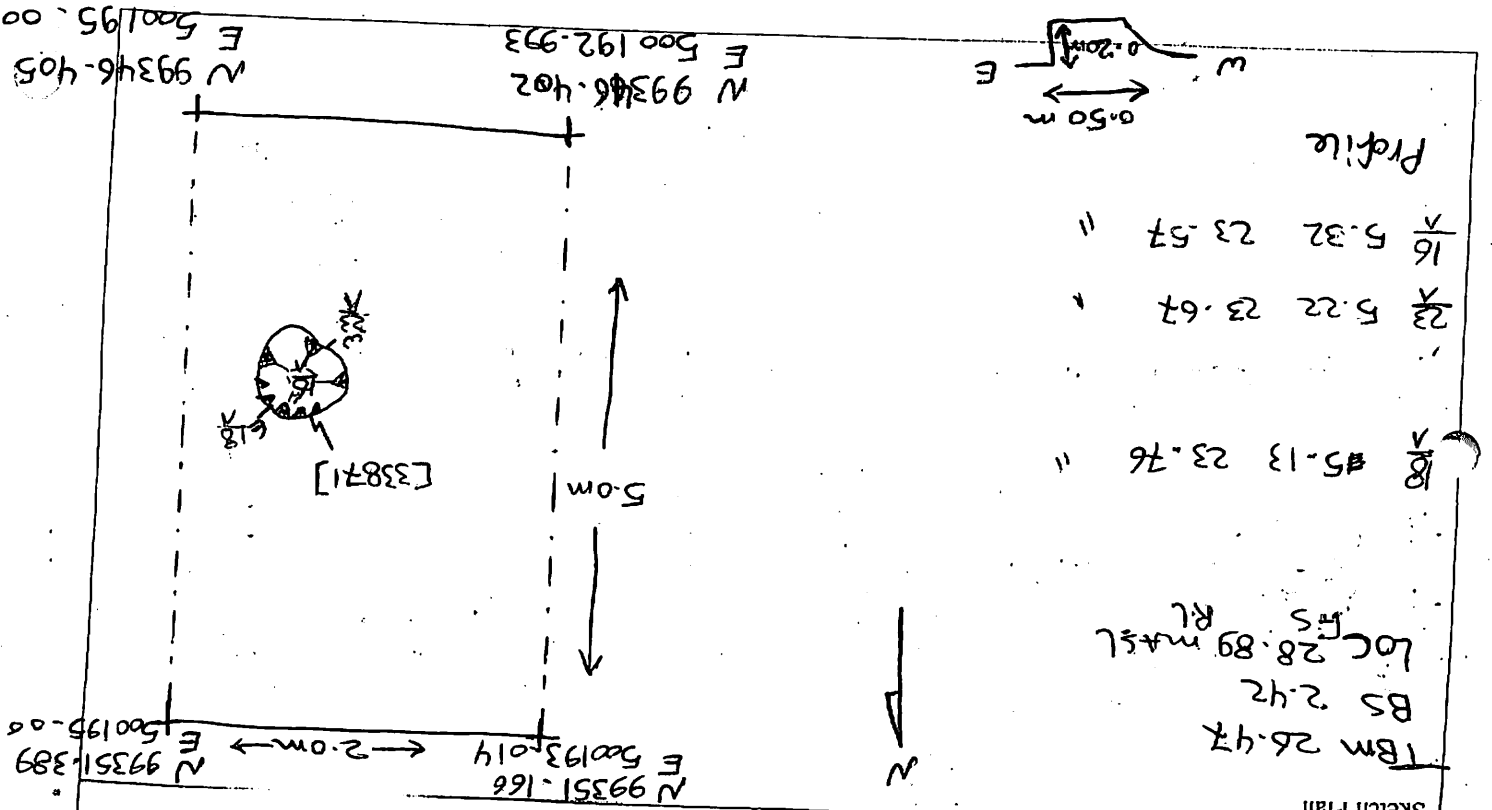 Sketch Plan
TBM 26.47
BS 2.42
LOC 28.89 mASL
FS RL
18 5.13 23.76 "
23 5.22 23.67 "
16 5.32 23.57 "
Profile
0.50 m
W 0.20m E
N
N 99351.166
E 500193.014
2.0m
N 99351.389
E 500195.00
5.0m
[33871]
18
N 99346.402
E 500192.993
N 99346.405
E 500195.00